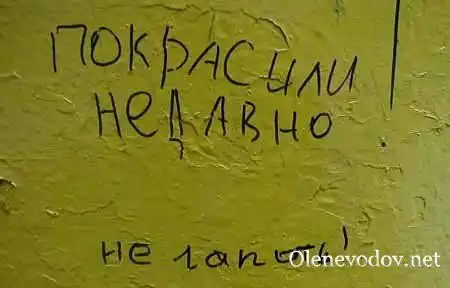 ПОКРАСИЛИ
НЕДАВНО
не лапать!
Olenevodov.net